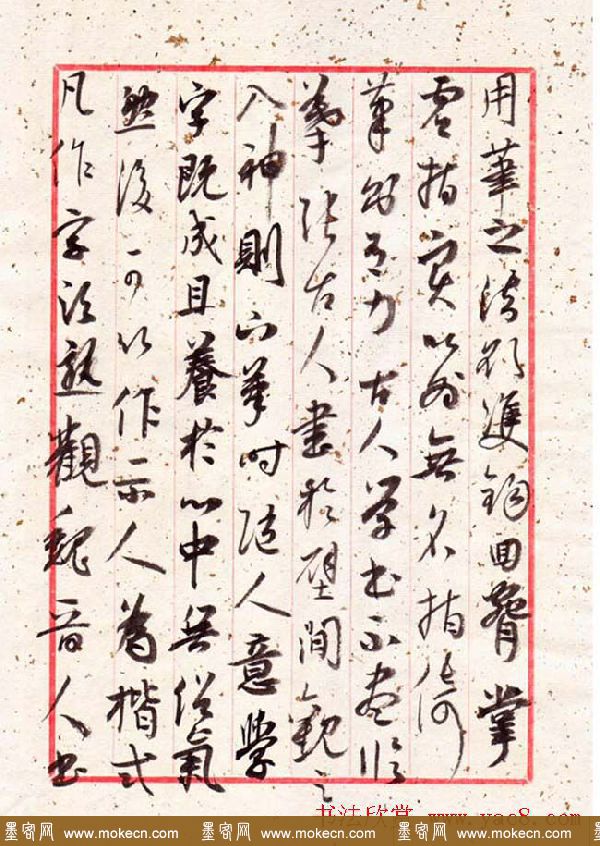 用筆之法欲雙鉤回腕掌
虛指實以為無名指倚
筆則有力古人學書不盡臨
摹張古人書於壁間觀之
入神則下筆時隨人意學
字既成且養於心中無俗氣
然後可以作示人為楷式
凡作字須熟觀魏晉人書
书法欣赏 www.yac8.com
墨客网 www.mokecn.com 墨客网 www.mokecn.com 墨客网 www.mokecn.com